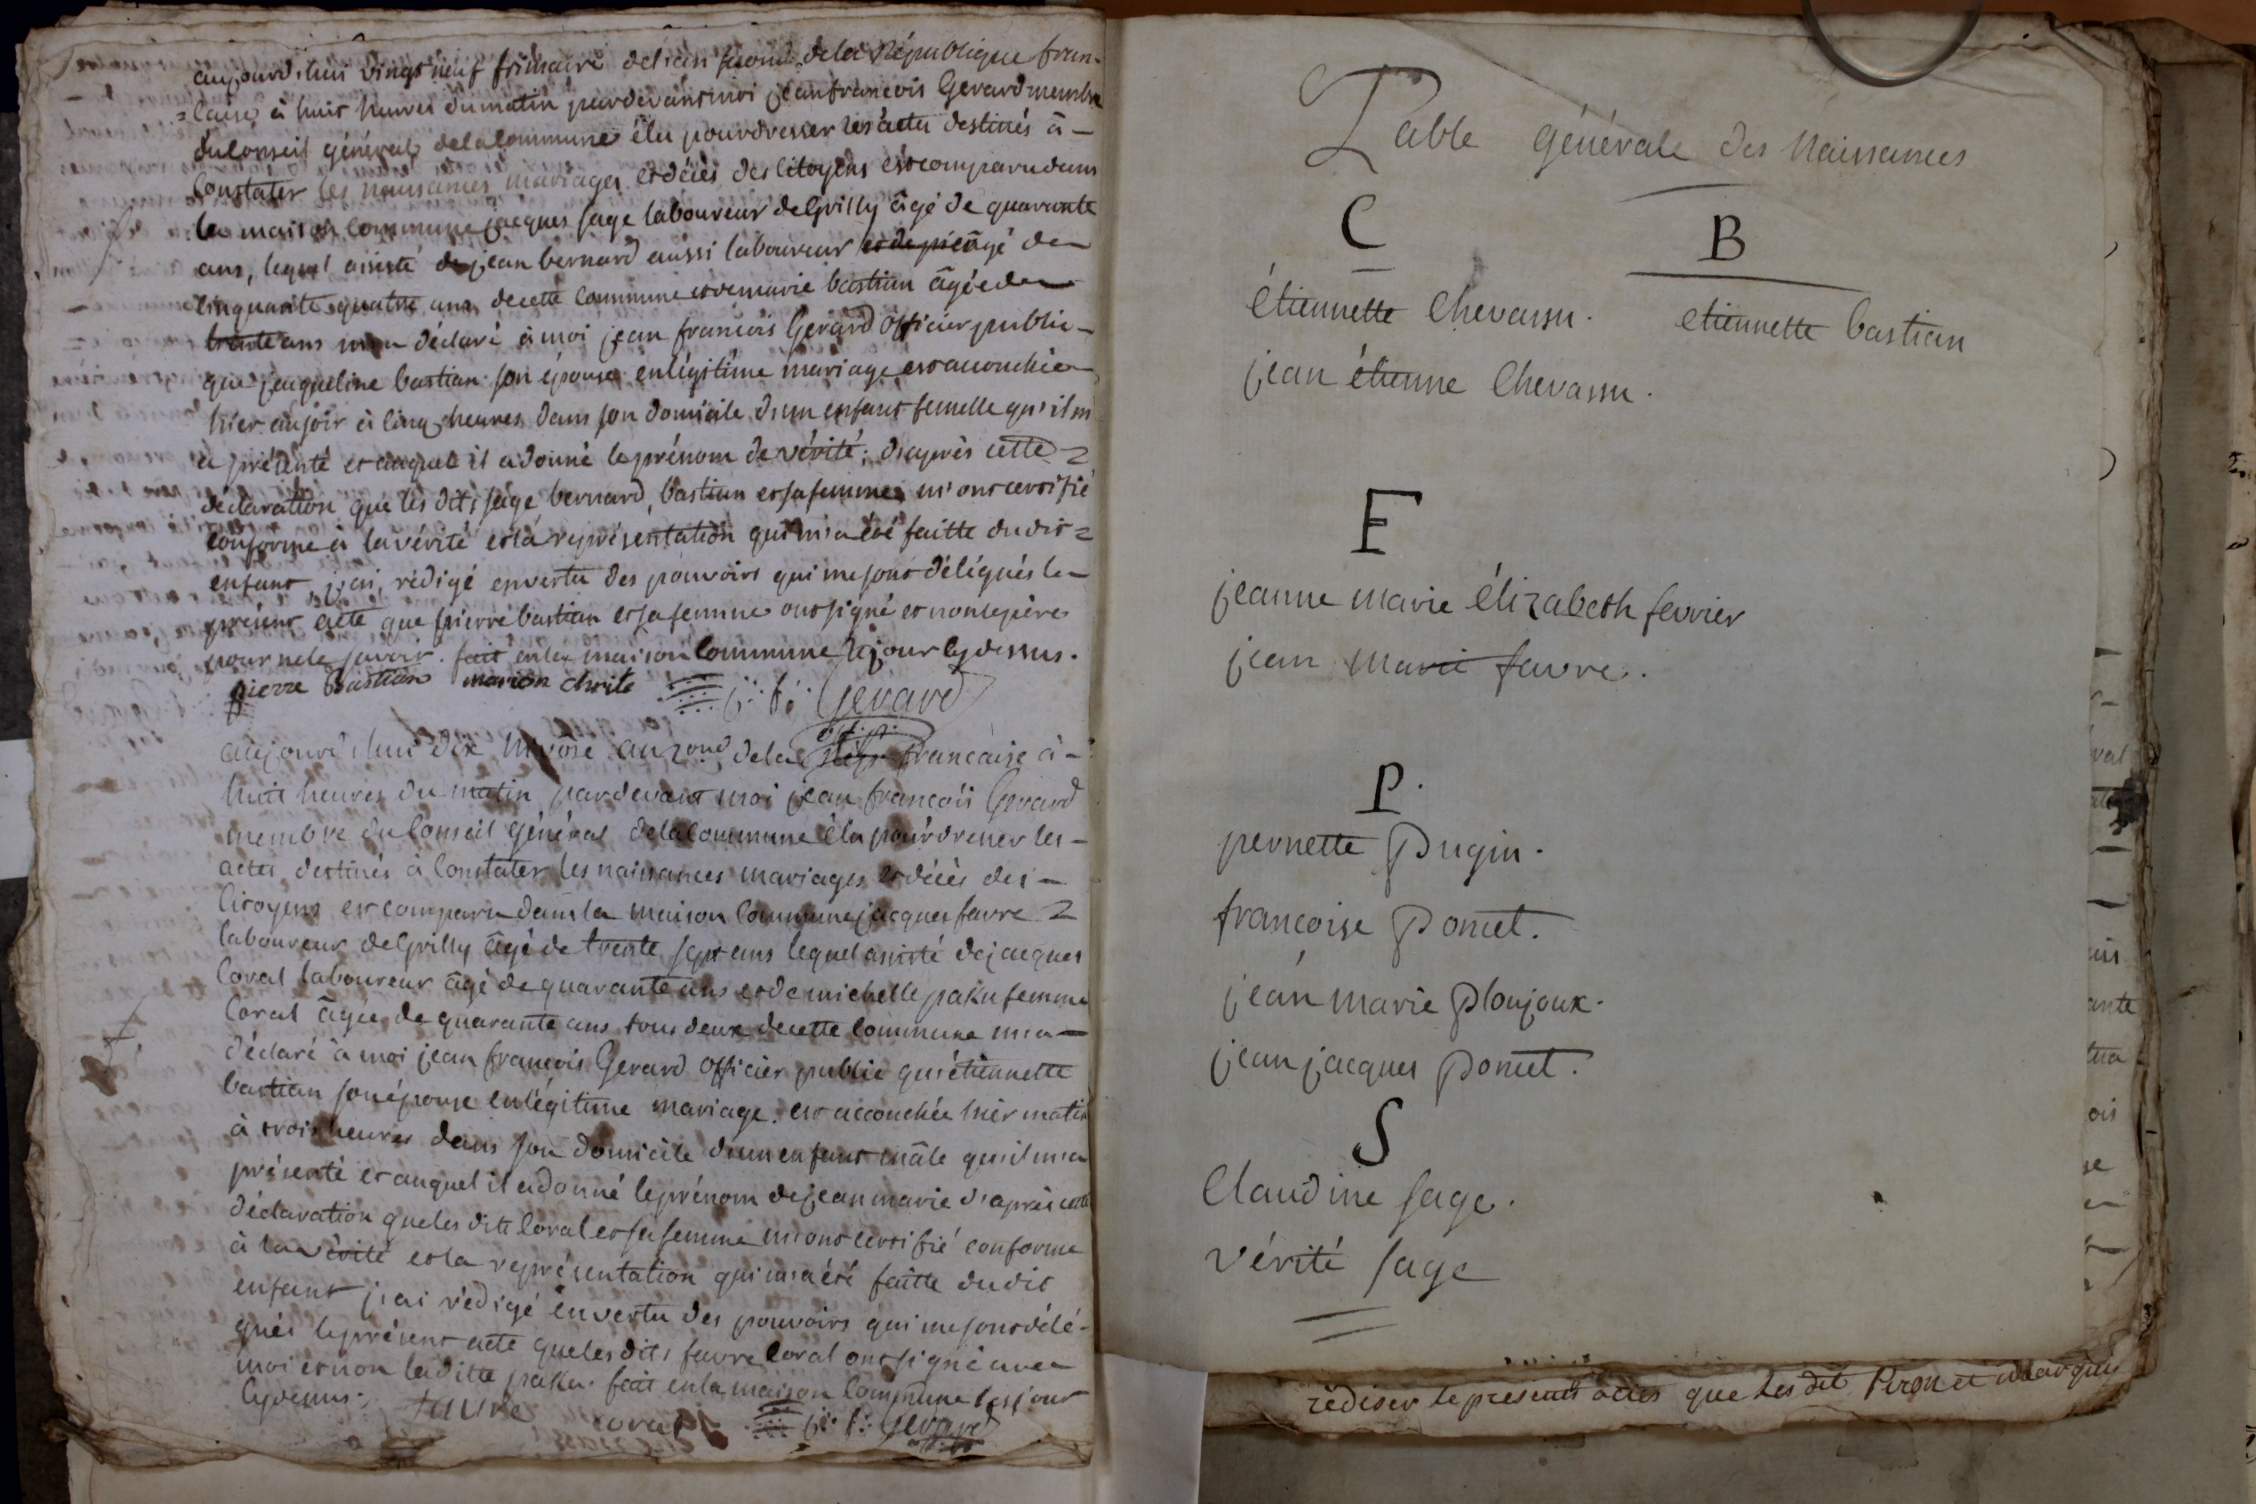 aujourd'hui vingt neuf frimaire de l'an second de la République fran-
=caise, à huit heures du matin pardevant moi jean francois Gerard membre
du Conseil général de la Commune élu pour dresser les actes destinés à -
Constater les naissances, mariages et décès des Citoyens est comparu dans
la maison Commune jacques sage laboureur de Grilly âgé de quarante
ans, lequel assisté de jean bernard aussi laboureur âgé de
cinquante quatre ans de cette Commune et de marie bastian âgée de
trente ans m'on déclaré à moi jean francois Gerard officier public -
que jacqueline bastian son épouse en légitime mariage est accouchée
hier au soir à cinq heures dans son domicile d'un enfant femelle qu'il m'
a présenté et auquel il a donné le prénom de vérité; d'après cette =
déclaration que les dits sage bernard, bastian et sa femme m'ont certifié
conforme à la vérité et la représentation qui m'a été faitte du dit =
enfant j'ai rédigé en vertu des pouvoirs qui me sont délégués le -
présent acte que pierre bastian et sa femme ont signé et non le père
pour ne le savoir. fait en la maison Commune le jour cy dessus.
pierre Bastian marion j: f: Gerard
off. p.
aujourd'hui dix Nivôse an 2ond de la Rép. francaise à -
huit heures du matin pardevant moi jean francois Gerard
membre du Conseil général de la Commune élu pour dresser les -
actes destinés à Constater les naissances mariages et décès des -
Citoyens est comparu dans la maison Commune jacques favre =
laboureur de Grilly âgé de trente sept ans lequel assisté de jacques
Coral laboureur âgé de quarante ans et de michelle paku femme
Coral âgée de quarante ans tous deux de cette Commune m'a -
déclaré à moi jean francois Gerard officier public qu'étiennette
bastian son épouse en légitime mariage est accouchée hier matin
à trois heures dans son domicile d'un enfant mâle qu'il m'a
présenté et auquel il a donné le prénom de jean marie d'après cette
déclaration que les dits Coral et sa femme m'ont certifié conforme
à la vérité et la représentation qui m'a été faitte du dit
enfant j'ai rédigé en vertu des pouvoirs qui me sont délé-
gués le présent acte que les dits favre Coral ont signé avec
moi et non la ditte paku. fait en la maison Commune les jour
cy dessus.
favre coral j: f: Gerard
Table générale des Naissances
C
étiennette Chevassu.
jean étienne Chevassu.
B
etiennette bastian
F
jeanne marie élizabeth fevrier
jean marie favre.
P.
pernette Pugin.
francoise Pomet.
jean marie Ploujoux.
jean jacques Pomet.
S
Claudine sage.
vérité sage
rédiser le présent actes que les dit Peron et